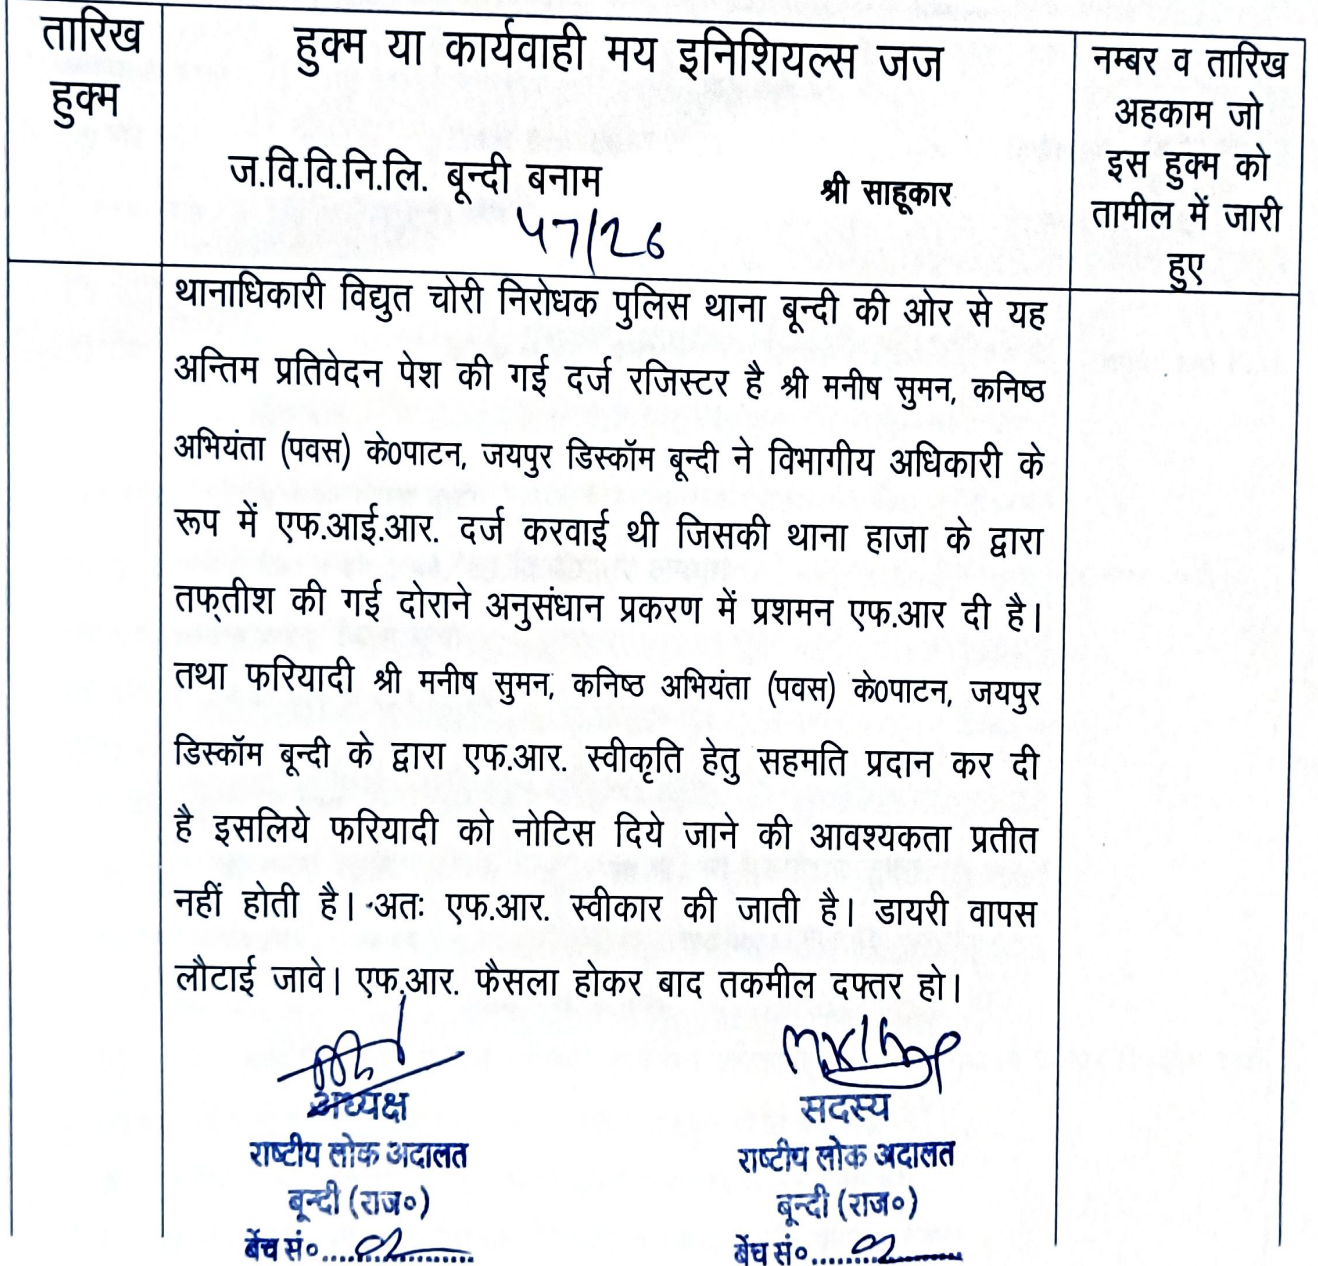 तारिख हुक्म
हुक्म या कार्यवाही मय इनिशियल्स जज
नम्बर व तारिख
अहकाम जो
इस हुक्म को
तामील में जारी
हुए
ज.वि.वि.नि.लि. बून्दी बनाम श्री साहूकार
47/26
थानाधिकारी विद्युत चोरी निरोधक पुलिस थाना बून्दी की ओर से यह
अन्तिम प्रतिवेदन पेश की गई दर्ज रजिस्टर है श्री मनीष सुमन, कनिष्ठ
अभियंता (पवस) के0पाटन, जयपुर डिस्कॉम बून्दी ने विभागीय अधिकारी के
रूप में एफ.आई.आर. दर्ज करवाई थी जिसकी थाना हाजा के द्वारा
तफ्तीश की गई दोराने अनुसंधान प्रकरण में प्रशमन एफ.आर दी है।
तथा फरियादी श्री मनीष सुमन, कनिष्ठ अभियंता (पवस) के0पाटन, जयपुर
डिस्कॉम बून्दी के द्वारा एफ.आर. स्वीकृति हेतु सहमति प्रदान कर दी
है इसलिये फरियादी को नोटिस दिये जाने की आवश्यकता प्रतीत
नहीं होती है। अतः एफ.आर. स्वीकार की जाती है। डायरी वापस
लौटाई जावे। एफ.आर. फैसला होकर बाद तकमील दफ्तर हो।
अध्यक्ष
राष्टीय लोक अदालत
बून्दी (राज०)
बेंच सं०
सदस्य
राष्टीय लोक अदालत
बून्दी (राज०)
बेंच सं०